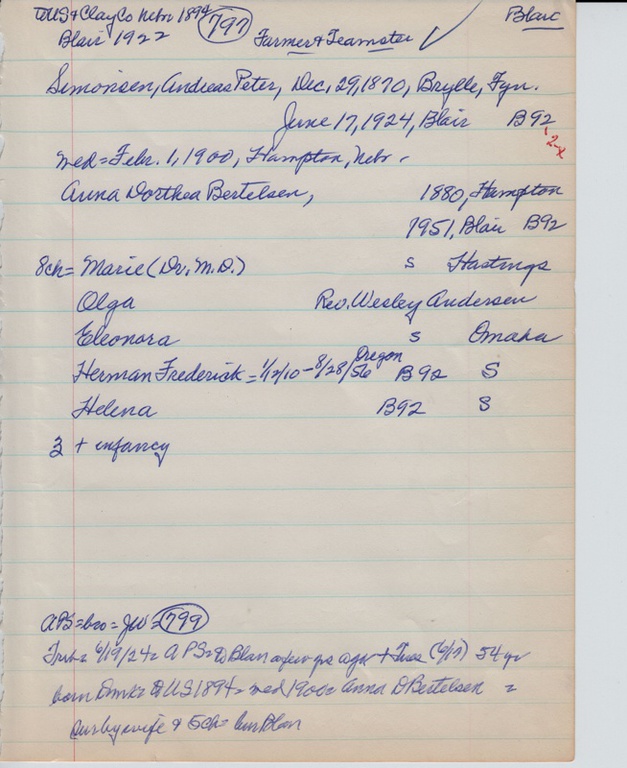 to US & Clay Co Nebr 1894 797 Blair
Blair 1922 Farmer & Teamster ✓
Simonsen, Andreas Peter, Dec, 29, 1870, Brylle, Fyn.
June 17, 1924, Blair B92
2-x
med = Febr. 1, 1900, Hampton, Nebr.
Anna Dorthea Bertelsen, 1880, Hampton
1951, Blair B92
8ch = Marie (Dr. M.D.) s Hastings
Olga Rev. Wesley Andersen
Eleonora s Omaha
Herman Frederick = 1/2/10 - 8/28/56 Oregon B92 S
Helena B92 S
3 + infancy
APS = bro = JW = 799
Trib = 6/19/24 = APS = to Blair a few yrs ago + Tues (6/17) 54 yr
born Dmk = to US 1894 = med 1900 = Anna D Bertelsen =
surby wife & 5ch = bur Blair